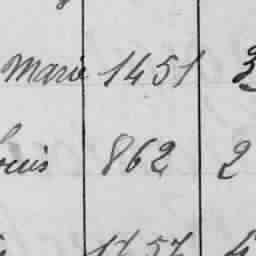 Marie 1451 3
Louis 862 2
1457